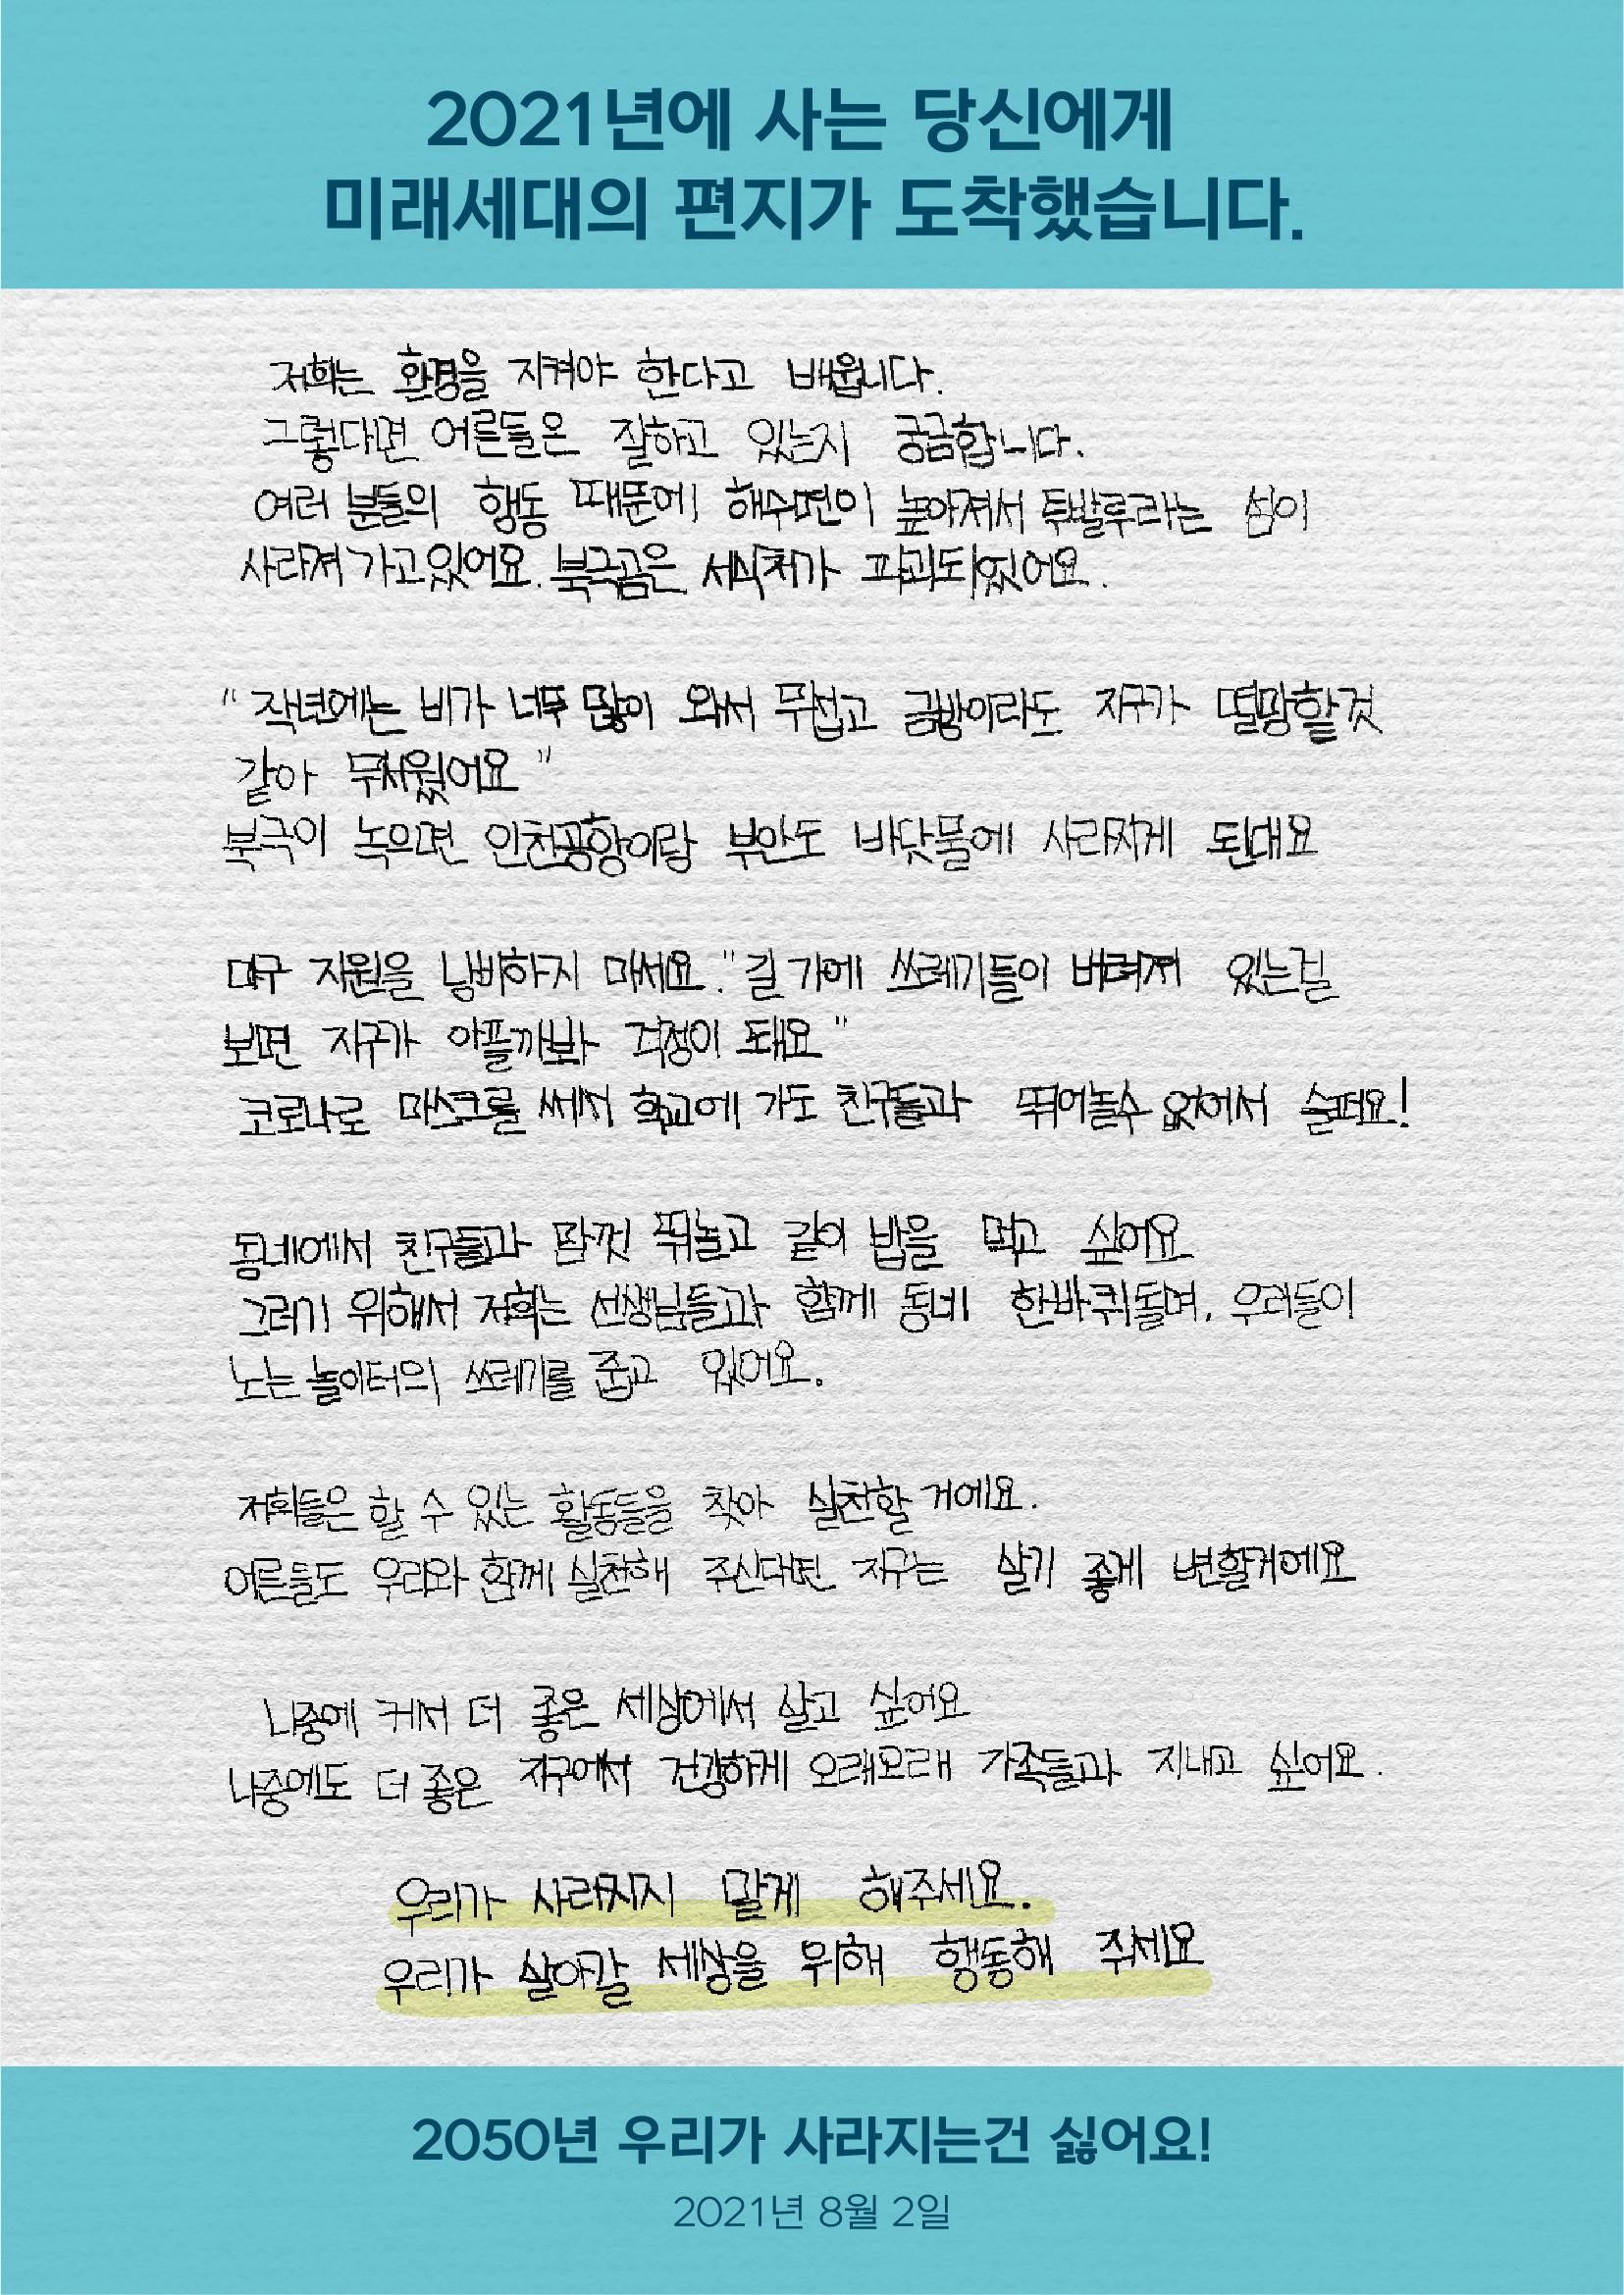 2021년에 사는 당신에게
미래세대의 편지가 도착했습니다.
저희는 환경을 지켜야 한다고 배웁니다.
그렇다면 어른들은 잘하고 있는지 궁금합니다.
여러 분들의 행동 때문에 해수면이 높아져서 투발루라는 섬이
사라져 가고있어요. 북극곰은 서식처가 파괴되었어요.
"작년에는 비가 너무 많이 와서 무섭고 금방이라도 지구가 멸망할것
같아 무서웠어요"
북극이 녹으면 인천공항이랑 부안도 바닷물에 사라지게 된대요
마구 자원을 낭비하지 마세요. "길 가에 쓰레기들이 버려져 있는걸
보면 지구가 아플까봐 걱정이 돼요"
코로나로 마스크를 써서 학교에 가도 친구들과 뛰어놀수 없어서 슬퍼요!
동네에서 친구들과 맘껏 뛰놀고 같이 밥을 먹고 싶어요
그러기 위해서 저희는 선생님들과 함께 동네 한바퀴돌며, 우리들이
노는 놀이터의 쓰레기를 줍고 있어요.
저희들은 할 수 있는 활동들을 찾아 실천할 거에요.
어른들도 우리와 함께 실천해 주신다면 지구는 살기 좋게 변할거에요
나중에 커서 더 좋은 세상에서 살고 싶어요
나중에도 더 좋은 지구에서 건강하게 오래오래 가족들과 지내고 싶어요.
우리가 사라지지 말게 해주세요.
우리가 살아갈 세상을 위해 행동해 주세요
2050년 우리가 사라지는건 싫어요!
2021년 8월 2일